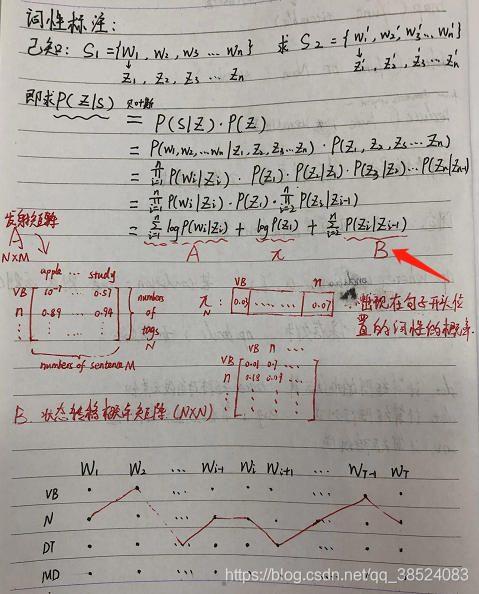 词性标注：
已知: S₁ = {w₁, w₂, w₃ … wₙ} 求 S₂ = {w₁', w₂', w₃' … wₙ'}
↓ ↓
z₁, z₂, z₃ … zₙ z₁', z₂', z₃' … zₙ'
即求P(Z|S) 贝叶斯
= P(S|Z) · P(Z)
= P(w₁, w₂, … wₙ | z₁, z₂, z₃ … zₙ) · P(z₁, z₂, z₃ … zₙ)
= ∏ⁿᵢ₌₁ P(wᵢ|zᵢ) · P(z₁) · P(z₂|z₁) · P(z₃|z₂) … P(zₙ|zₙ₋₁)
= ∏ⁿᵢ₌₁ P(wᵢ|zᵢ) · P(z₁) · ∏ⁿᵢ₌₂ P(zᵢ|zᵢ₋₁)
= ∑ⁿᵢ₌₁ log P(wᵢ|zᵢ) + log P(z₁) + ∑ⁿᵢ₌₂ P(zᵢ|zᵢ₋₁)
A π B
发射矩阵
A
N×M
apple … study
VB 10⁻⁷ … 0.51
n 0.89 … 0.94
numbers of tags N
numbers of sentence M
VB n
π : 0.03 …… 0.07
出现在句子开头位置的词性的概率.
VB n …
VB 0.01 0.7 …
n
B. 状态转移概率矩阵 (N×N)
W₁ W₂ … Wᵢ₋₁ Wᵢ Wᵢ₊₁ … W_T₋₁ W_T
VB
N
DT
MD
https://blog.csdn.net/qq_38524083